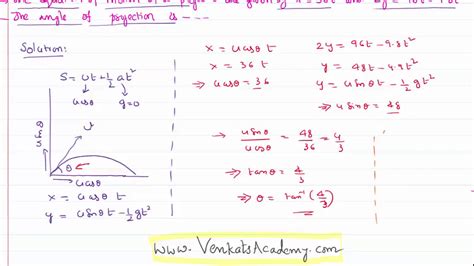 the angle of projection is ----
Solution:
S = ut + 1/2 at²
ucosθ g=0
usinθ
u
θ
ucosθ
x = ucosθ t
y = usinθt - 1/2 gt²
x = ucosθ t
x = 36 t
⇒ ucosθ = 36
2y = 96t - 9.8t²
y = 48t - 4.9t²
y = usinθt - 1/2 gt²
⇒ usinθ = 48
usinθ/ucosθ = 48/36 = 4/3
⇒ tanθ = 4/3
⇒ θ = tan⁻¹(4/3)
www.VenkatsAcademy.com